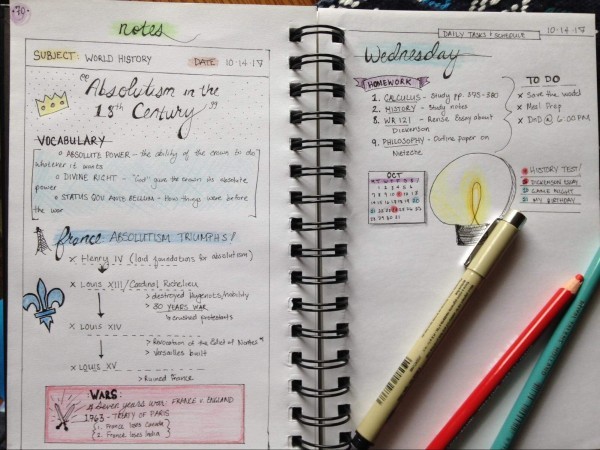 -70-
notes
SUBJECT: WORLD HISTORY DATE: 10·14·17
"Absolutism in the
18th Century"
VOCABULARY
ABSOLUTE POWER - the ability of the crown to do
whatever it wants
DIVINE RIGHT - "God" gave the crown its absolute
power
STATUS QOU ANTE BELLUM - How things were before
the war
france: ABSOLUTISM TRIUMPHS!
X Henry IV (laid foundations for absolutism)
X Louis XIII/Cardinal Richelieu
> destroyed Hugenots/nobility
> 30 YEARS WAR
crushed protestants
X Louis XIV
> Revocation of the Edict of Nantes
> Versailles built
X LOUIS XV
> Ruined France
WARS:
Seven years war: FRANCE v. ENGLAND
1763 - TREATY OF PARIS
1. France loses Canada
2. France loses India
DAILY TASKS & SCHEDULE 10·14·17
Wednesday
HOMEWORK
1. CALCULUS - Study pp. 375-380
2. HISTORY - Study notes
8. WR 121 - Revise Essay about
Dickenson
9. PHILOSOPHY - Outline paper on
Nietzche
TO DO
X Save the world
X Meal Prep
X DnD @ 6:00 PM
OCT
HISTORY TEST!
DICKENSON ESSAY
GAME NIGHT
MY BIRTHDAY